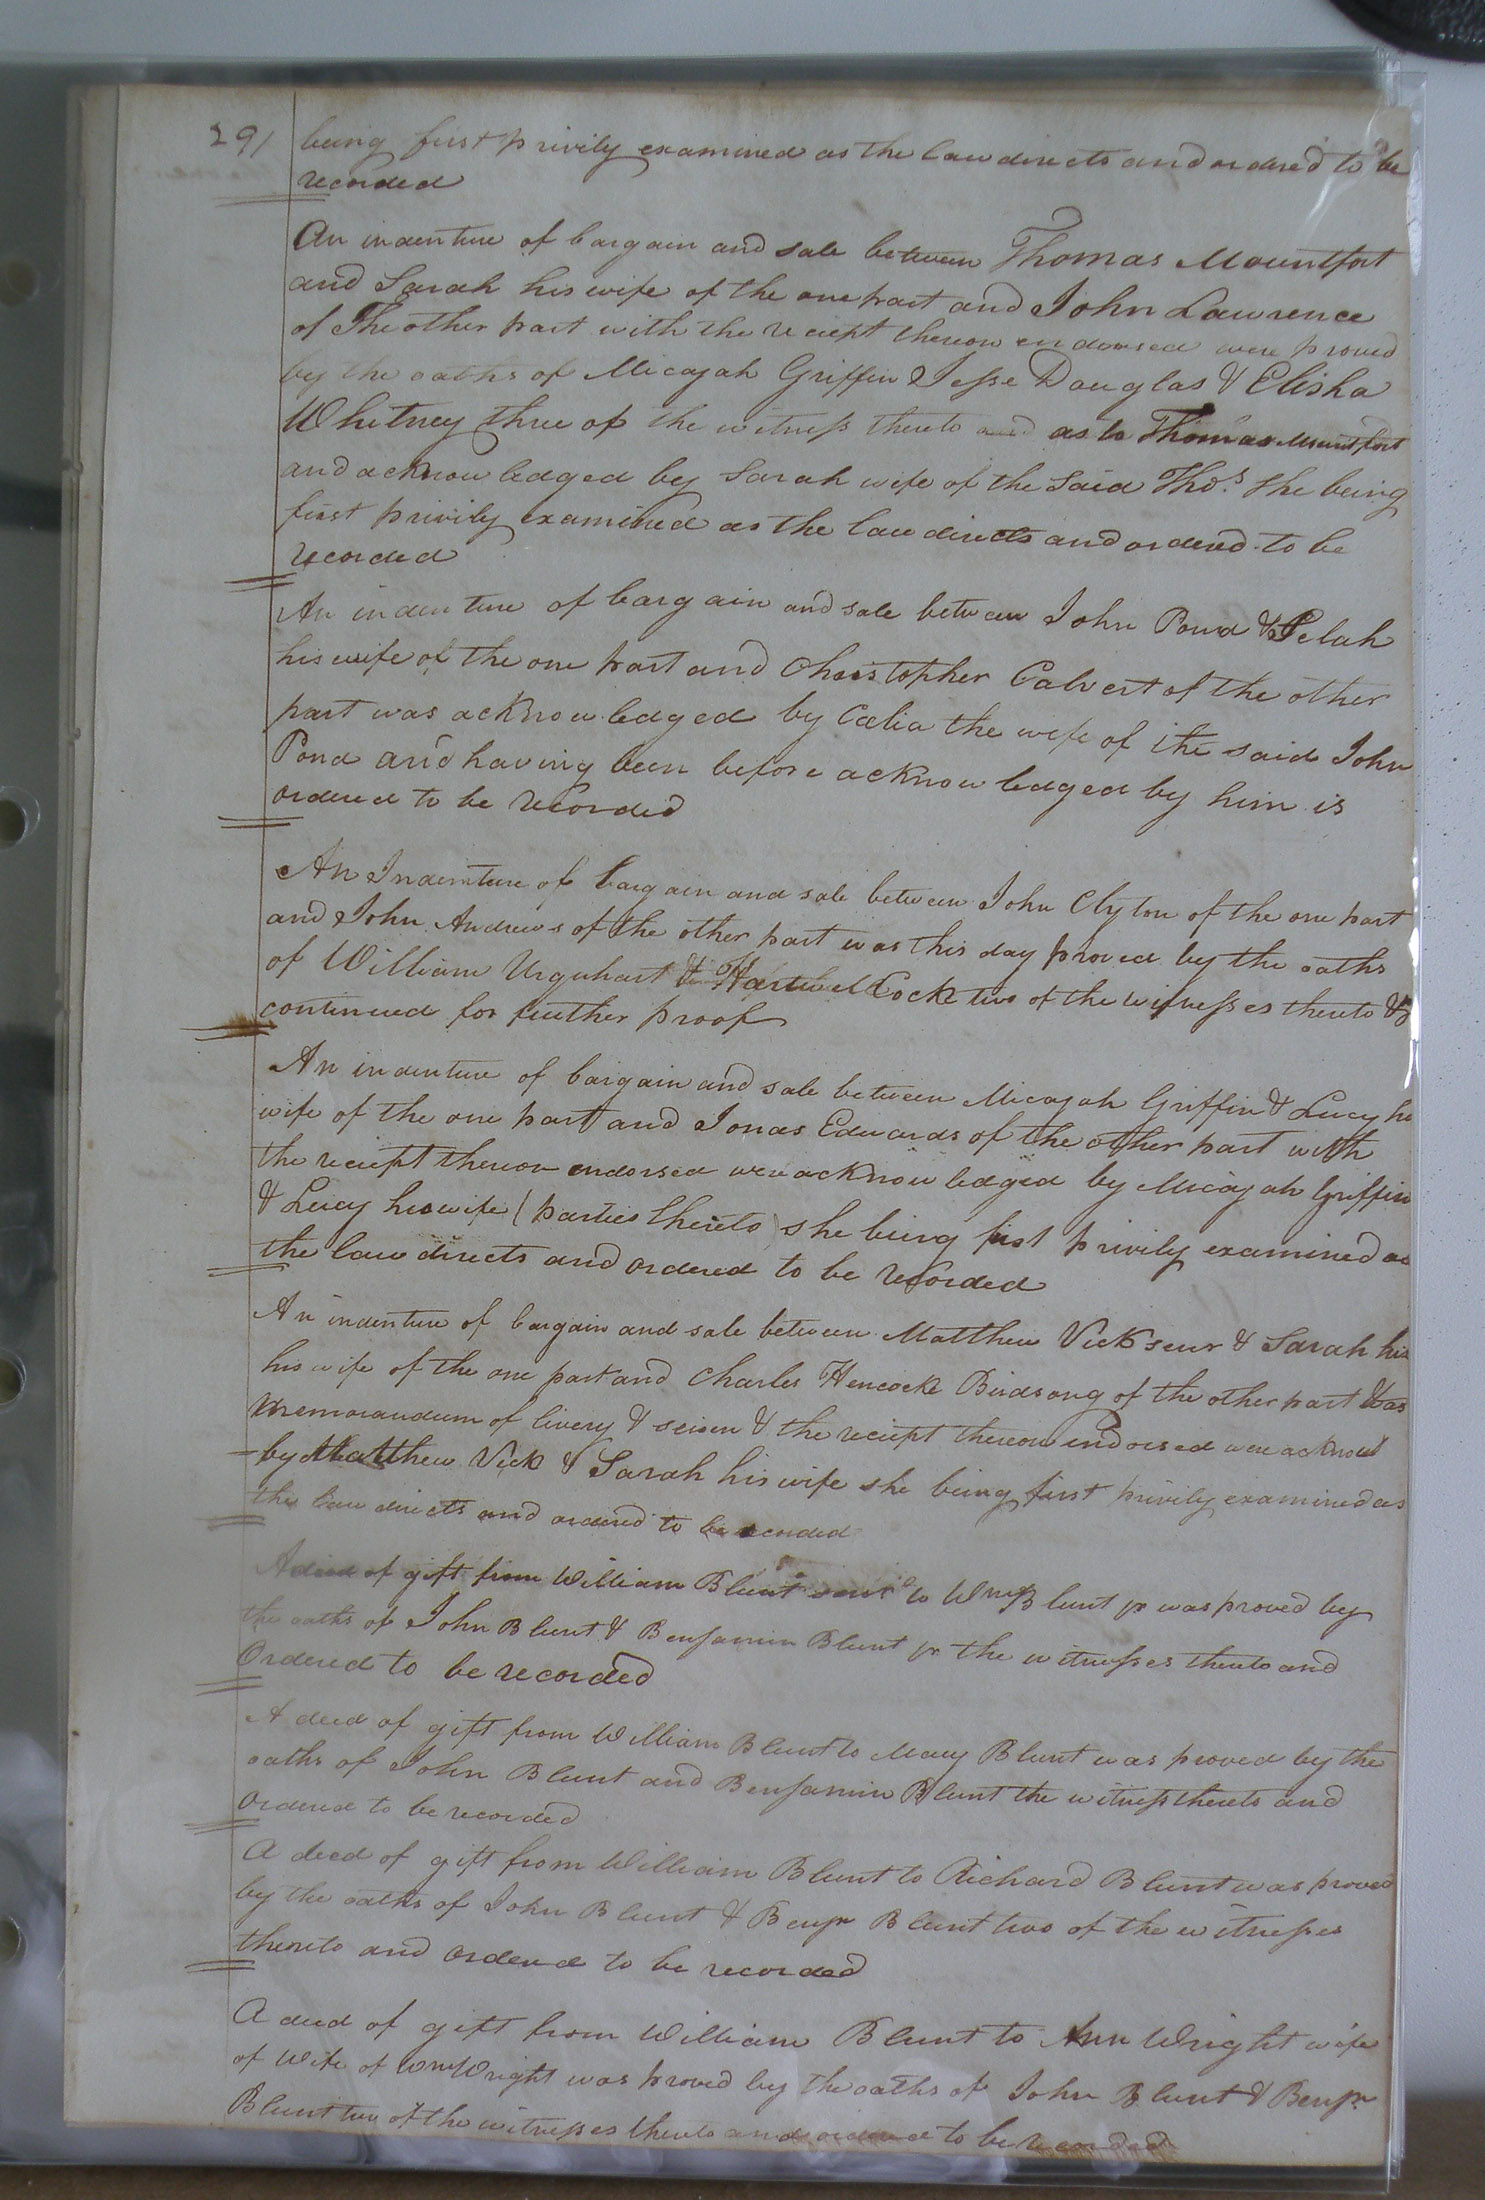 291
being first privily examined as the law directs and ordered to be
recorded
An indenture of bargain and sale between Thomas Mountfort
and Sarah his wife of the one part and John Lawrence
of The other part with the reciept thereon endorsed were proved
by the oaths of Micajah Griffin Jesse Douglas & Elisha
Whitney three of the witness thereto and as to Thomas Mountfort
and acknowledged by Sarah wife of the Said Thos. She being
first privily examined as the law directs and ordered to be
recorded
An indenture of bargain and sale between John Pond & Selah
his wife of the one part and Christopher Calvert of the other
part was acknowledged by Cælia the wife of the said John
Pond and having been before acknowledged by him is
ordered to be recorded
An Indenture of bargain and sale between John Clyton of the one part
and John Andrews of the other part was this day proved by the oaths
of William Urquhart & Hartwel Cocke two of the witnesses thereto &
continued for further proof
An indenture of bargain and sale between Micajah Griffin & Lucy his
wife of the one part and Jonas Edwards of the other part with
the reciept thereon endorsed were acknowledged by Micajah Griffin
& Lucy his wife (parties thereto) she being first privily examined as
the law directs and ordered to be recorded
An indenture of bargain and sale between Matthew Vick senr & Sarah his
his wife of the one part and Charles Hencocke Birdsong of the other part
memorandum of livery & seisen & the reciept thereon endorsed were acknowl
by Matthew Vick & Sarah his wife she being first privily examined as
the law directs and ordered to be recorded
A deed of gift from William Blunt senr to Wm Blunt jr was proved by
the oaths of John Blunt & Benjamin Blunt jr the witnesses thereto and
Ordered to be recorded
A deed of gift from William Blunt to Mary Blunt was proved by the
oaths of John Blunt and Benjamin Blunt the witness thereto and
ordered to be recorded
A deed of gift from William Blunt to Richard Blunt was proved
by the oaths of John Blunt & Benjn Blunt two of the witnesses
thereto and ordered to be recorded
A deed of gift from William Blunt to Ann Wright wife
of Wife of Wm Wright was proved by the oaths of John Blunt & Benjn
Blunt two of the witnesses thereto and ordered to be recorded